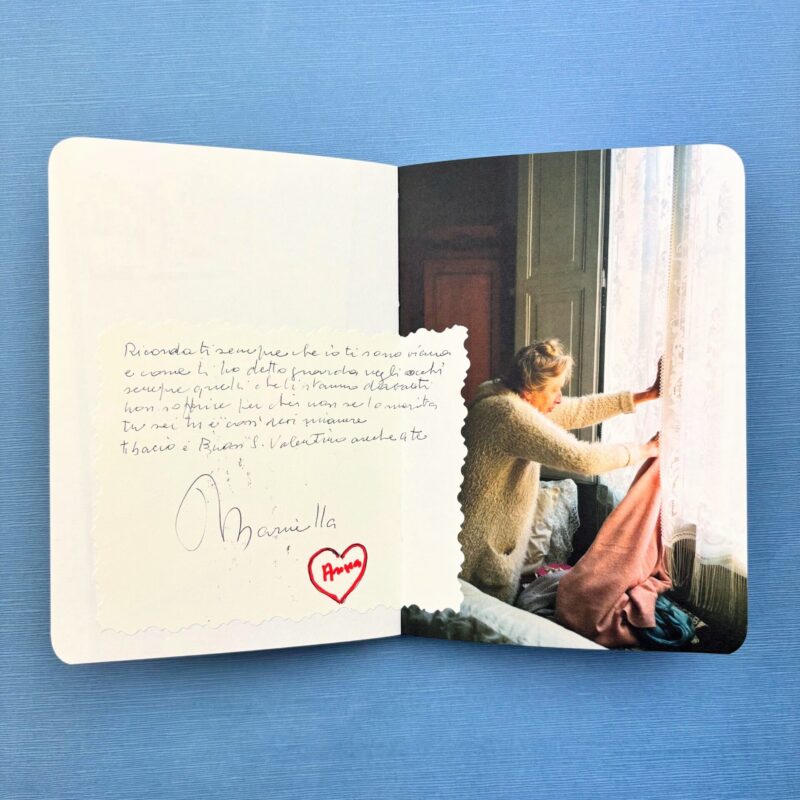 Ricordati sempre che io ti sono vicina
e come ti ho detto guarda negli occhi
sempre quelli che ti stanno davanti
non soffrire per chi non se lo merita
tu sei
ti bacio e Buon S. Valentino anche a te
Mariella
Anna